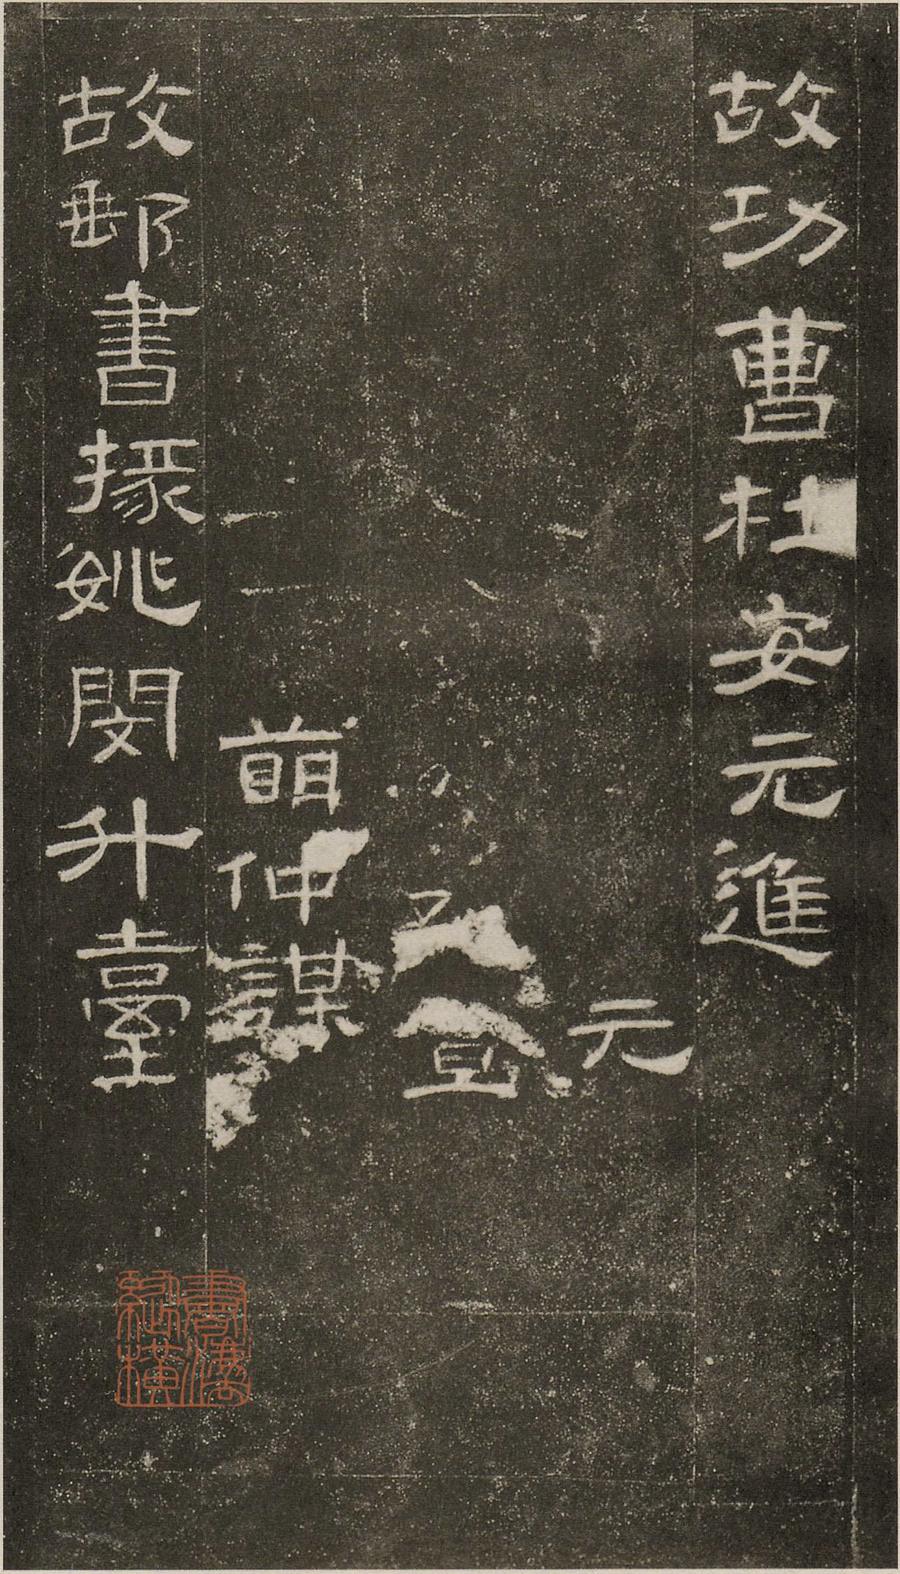 故功曹杜安元進
元
宣
萌仲謀
故郵書掾姚閔升臺